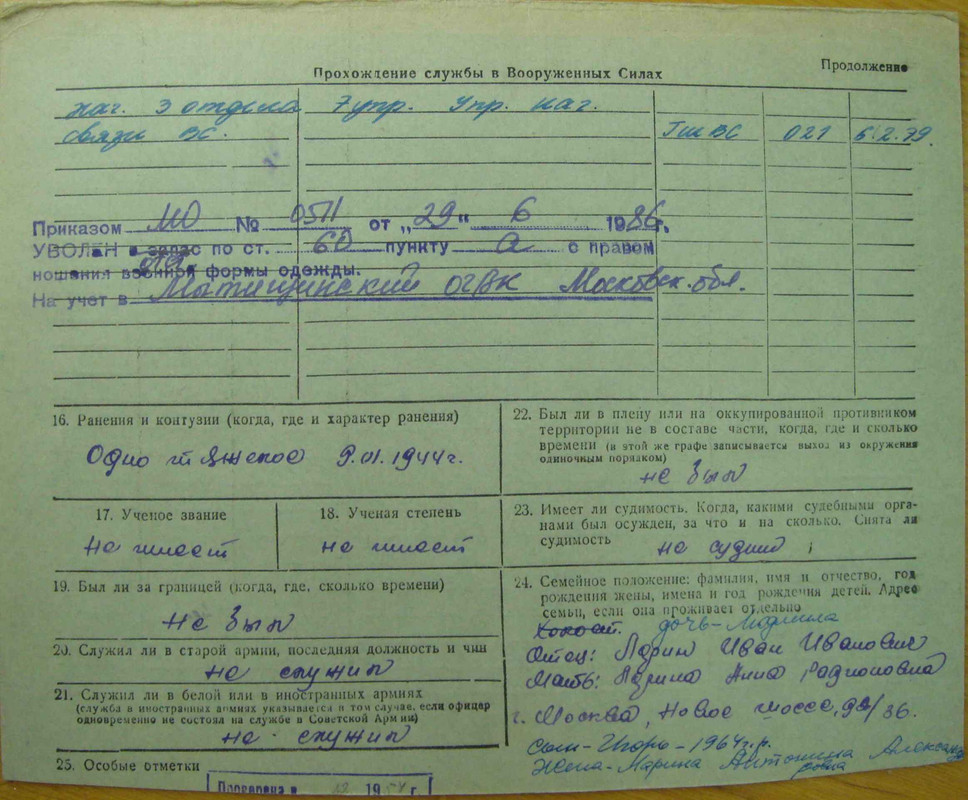 Прохождение службы в Вооруженных Силах
Продолжение
нач. 3 отдела 7 упр. Упр. нач.
связи ВС. ГШ ВС 021 5.2.79.
Приказом МО № 0511 от „29" 6 1986г.
УВОЛЕН в запас по ст. 60 пункту а с правом
ношения военной формы одежды.
На учет в Матищинский ОГВК Московск. обл.
16. Ранения и контузии (когда, где и характер ранения)
Одно тяжелое 9.01.1944г.
22. Был ли в плену или на оккупированной противником
территории не в составе части, когда, где и сколько
времени (в этой же графе записывается выход из окружения
одиночным порядком)
не был
17. Ученое звание
Не имеет
18. Ученая степень
не имеет
23. Имеет ли судимость. Когда, какими судебными орга-
нами был осужден, за что и на сколько. Снята ли
судимость не судим
19. Был ли за границей (когда, где, сколько времени)
Не был
20. Служил ли в старой армии, последняя должность и чин
не служил
21. Служил ли в белой или в иностранных армиях
(служба в иностранных армиях указывается в том случае, если офицер
одновременно не состоял на службе в Советской Армии)
не служил
24. Семейное положение: фамилия, имя и отчество, год
рождения жены, имена и год рождения детей. Адрес
семьи, если она проживает отдельно
Холост. дочь-Людмила
Отец: Ларин Иван Иванович
Мать: Ларина Анна Радионовна
г. Москва, Новое шоссе,
Сын-Игорь-1964г.р.
Жена-Марина Антонина Александ
25. Особые отметки
Проверена в 19 г